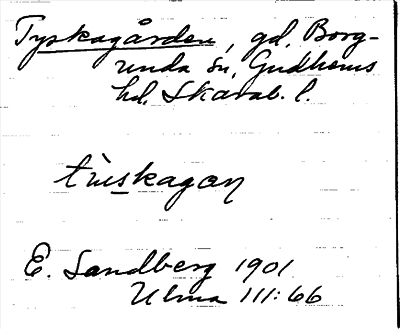 Tyskagården, gd, Borg-
unda sn, Gudhems
hd, Skarab. l.
tùskagaŋ
E. Sandberg 1901
Ulma 111:66